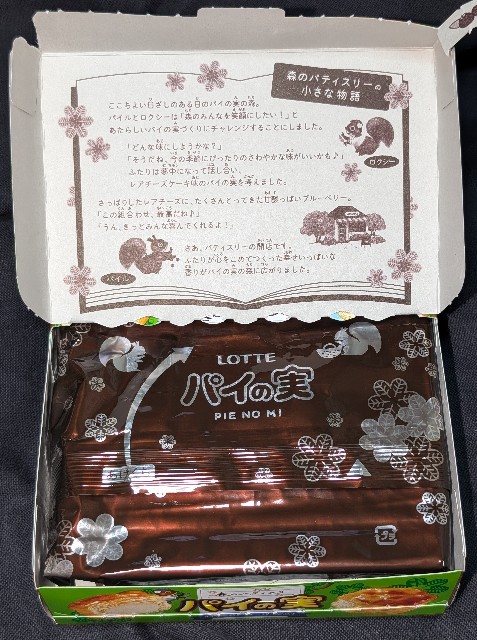 森のパティスリーの
小さな物語
ここちよい日ざしのある日のパイの実の森。
パイルとロクシーは「森のみんなを笑顔にしたい！」と
あたらしいパイの実づくりにチャレンジすることにしました。
「どんな味にしようかな？」
「そうだね、今の季節にぴったりのさわやかな味がいいかも♪」
ふたりは夢中になって話し合い、
レアチーズケーキ味のパイの実を考えました。
ロクシー
さっぱりしたレアチーズに、たくさんとってきた甘酸っぱいブルーベリー。
「この組合わせ、最高だね♪」
「うん、きっとみんな喜んでくれるよ！」
さあ、パティスリーの開店です。
ふたりが心をこめてつくった幸せいっぱいな
香りがパイの実の森に広がりました。
パイル
LOTTE
パイの実
PIE NO MI
プラ
パイの実